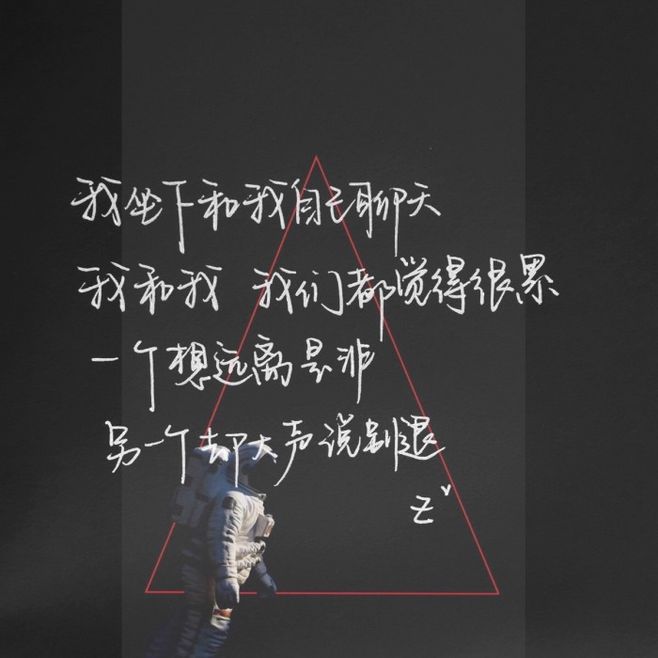 我坐下和我自己聊天
我和我 我们都觉得很累
一个想远离是非
另一个却大声说别退
Z